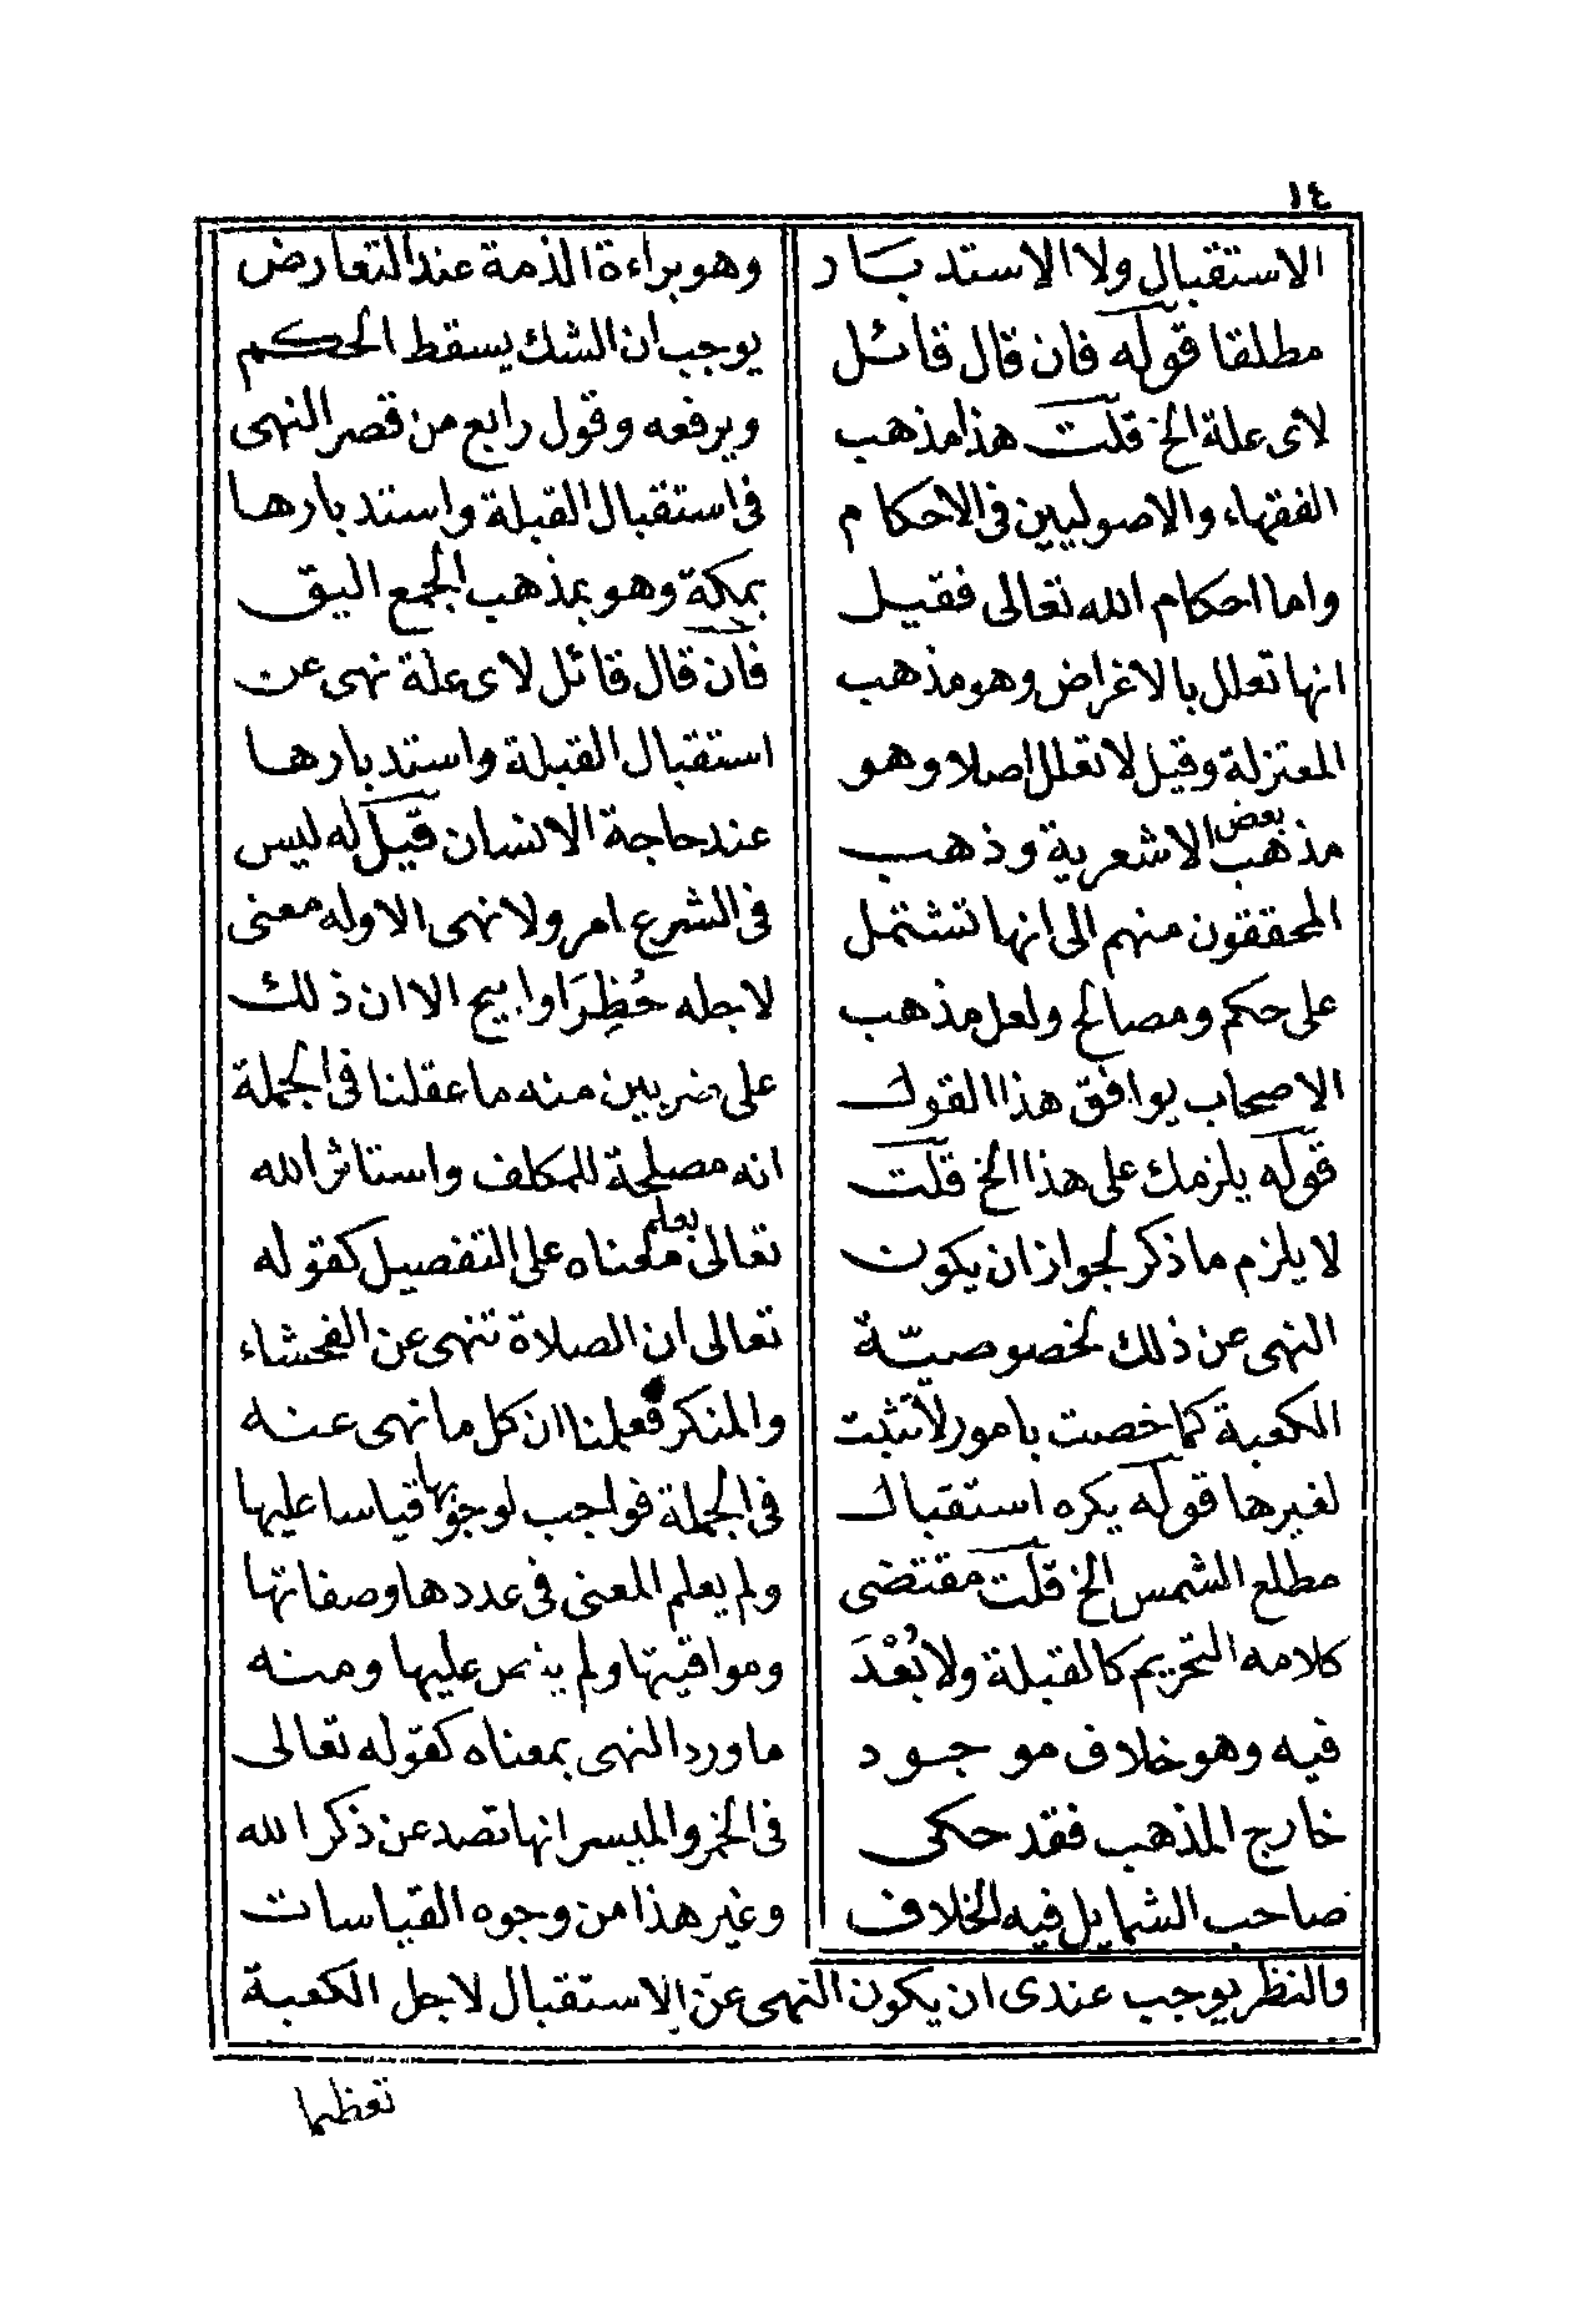 ١٤
الاستقبال ولا الاستدبار
مطلقا قوله فان قال قائل
لاى علة الخ قلت هذا مذهب
الفقهاء والاصوليين فى الاحكام
واما احكام الله تعالى فقيل
انها تعلل بالاغراض وهو مذهب
المعتزلة وقيل لا تعلل اصلا وهو
مذهب بعض الاشعرية وذهب
المحققون منهم الى انها تشتمل
على حكم ومصالح ولعل مذهب
الاصحاب يوافق هذا القول
قوله يلزمك على هذا الخ قلت
لا يلزم ما ذكر لجواز ان يكون
النهى عن ذلك لخصوصيّة
الكعبة كما خصت بامور لا تثبت
لغيرها قوله يكره استقبال
مطلع الشمس الخ قلت مقتضى
كلامه التحريم كالقبلة ولا بُعْدَ
فيه وهو خلاف موجود
خارج المذهب فقد حكى
صاحب الشمايل فيه الخلاف
وهو براءة الذمة عند التعارض
يوجب ان الشك يسقط الحكم
ويرفعه وقول رابع من قصر النهى
فى استقبال القبلة واستدبارها
بمكة وهو بمذهب الجمع اليق
فان قال قائل لاى علة نهى عن
استقبال القبلة واستدبارها
عند حاجة الانسان قيل له ليس
فى الشرع امر ولا نهى الا وله معنى
لاجله حُظِرَ او ابيح الا ان ذلك
على ضربين منه ما عقلنا فى الجملة
انه مصلحة للمكلف واستاثر الله
تعالى بعلم معناه على التفصيل كقوله
تعالى ان الصلاة تنهى عن الفحشاء
والمنكر فعلمنا ان كل ما نهى عنه
فى الجملة فواجب لوجوبها قياسا عليها
ولم يعلم المعنى فى عددها وصفاتها
ومواقيتها ولم ينص عليها ومنه
ما ورد النهى بمعناه كقوله تعالى
فى الخمر والميسر انها تصد عن ذكر الله
وغير هذا من وجوه القياسات
والنظر يوجب عندى ان يكون النهى عن الاستقبال لاجل الكعبة
تعظيما